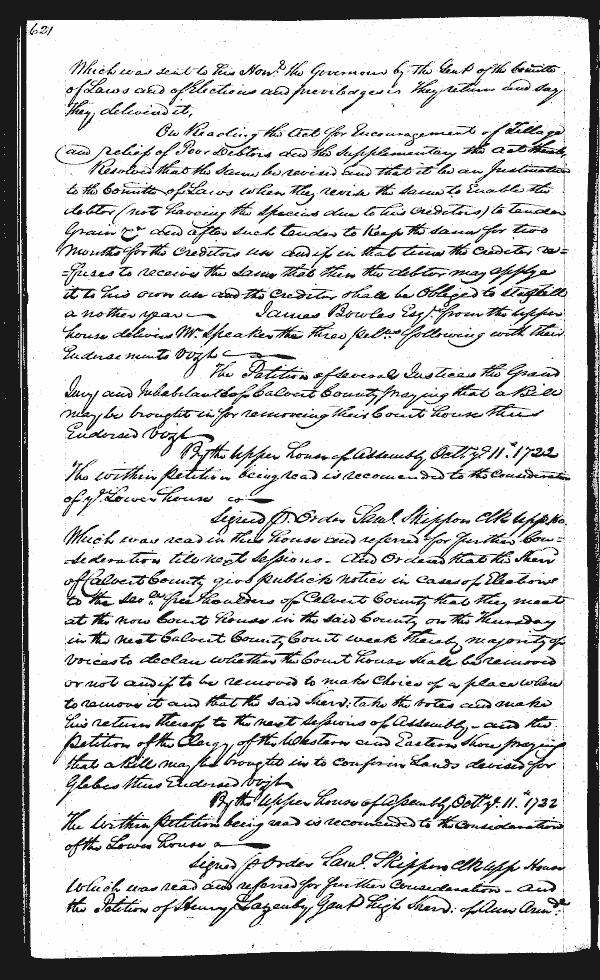 621
Which was sent to his Hon.r the Governour by the Gent. of the Comitte
of Laws and of Elections and previledges They return and say
they delivered it,
On Reading the Act for Encouragement of Tillage
and relief of Poor Debtors and the supplementary Act
Resolved that the same be revised and that it be an Instruction
to the Comitte of Laws when they revise the same to Enable the
debtor (not having the Species due to his Creditors) to tender
Grain &c and after such tender to Keep the same for two
months for the Creditors use and if in that time the Creditor re=
=fuses to receive the same that then the debtor may apply
it to his own use and the Creditor shall be Obliged to stay till
a nother year James Bowles Esq.r from the upper
house delivers Mr. Speaker the three following with their
Endorsements Vizt
The Petition of several Justices the Grand
Jury and Inhabitants of Calvert County praying that a Bill
may be brought in for removing their Court house thus
Endorsed Vizt
By the Upper house of Assembly Octr. ye 11th 1722
The within Petition being read is recomended to the Consideration
of ye. Lower house
Signed p Order Saml. Skippon Clk upp. ho.
Which was read in this house and referred for further Con=
=sideration till next Sessions - And Ordered that the Sheriff
of Calvert County give publick notice in case of Elections
to the freeholders of Calvert County that they meet
at the now Court house in the said County on the Thursday
in the next Calvert County Court week there by majority of
voices to declare whether the Court house shall be removed
or not and if to be removed to make Choice of a place when
to remove it and that the said Sherr: take the votes and make
his return thereof to the next Sessions of Assembly - and the
Petition of the Clergy of the Western and Eastern Shore praying
that a bill may be brought in to confirm Lands devised for
Glebes thus Endorsed Vizt
By the Upper house of Assembly Octr. ye. 11th 1722
The within Petition being read is recomended to the Consideration
of the Lower house
Signed p Order Saml. Skippon Clk upp House
Which was read and referred for further Consideration - and
the Petition of Henry Lazenby Gent high Sherr: of Ann Arundl